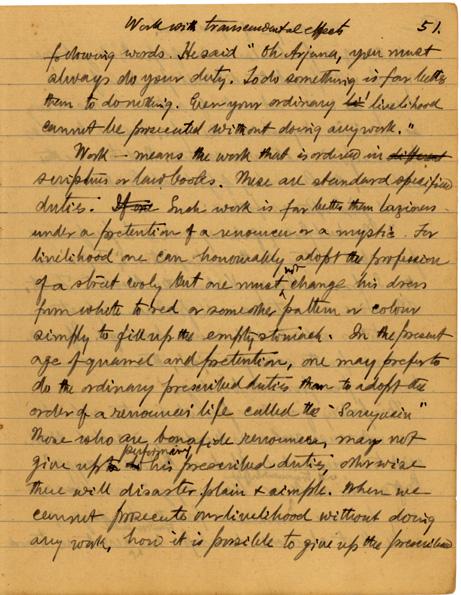 Work with transcendental effects 51.
following words. He said "Oh Arjuna, you must
always do your duty. To do something is far better
then to do nothing. Even your ordinary livelihood
cannot be prosecuted without doing any work."
Work - means the work that is ordered in different
scriptures or law books. These are standard specified
duties. If one Such work is far better than laziness
under a pretention of a renouncer or a mystic. For
livelihood one can honourably adopt the profession
of a street cooly but one must not change his dress
from white to red or some other pattern or colour
simply to fill up the empty stomach. In the present
age of quarrel and pretention, one may prefer to
do the ordinary prescribed duties than to adopt the
order of a renouncer's life called the "Sannyasin"
Those who are bonafide renouncers, may not
give up performing his prescribed duties, otherwise
there will disaster plain & simple. When we
cannot prosecute our livelihood without doing
any work, how it is possible to give up the prescribed